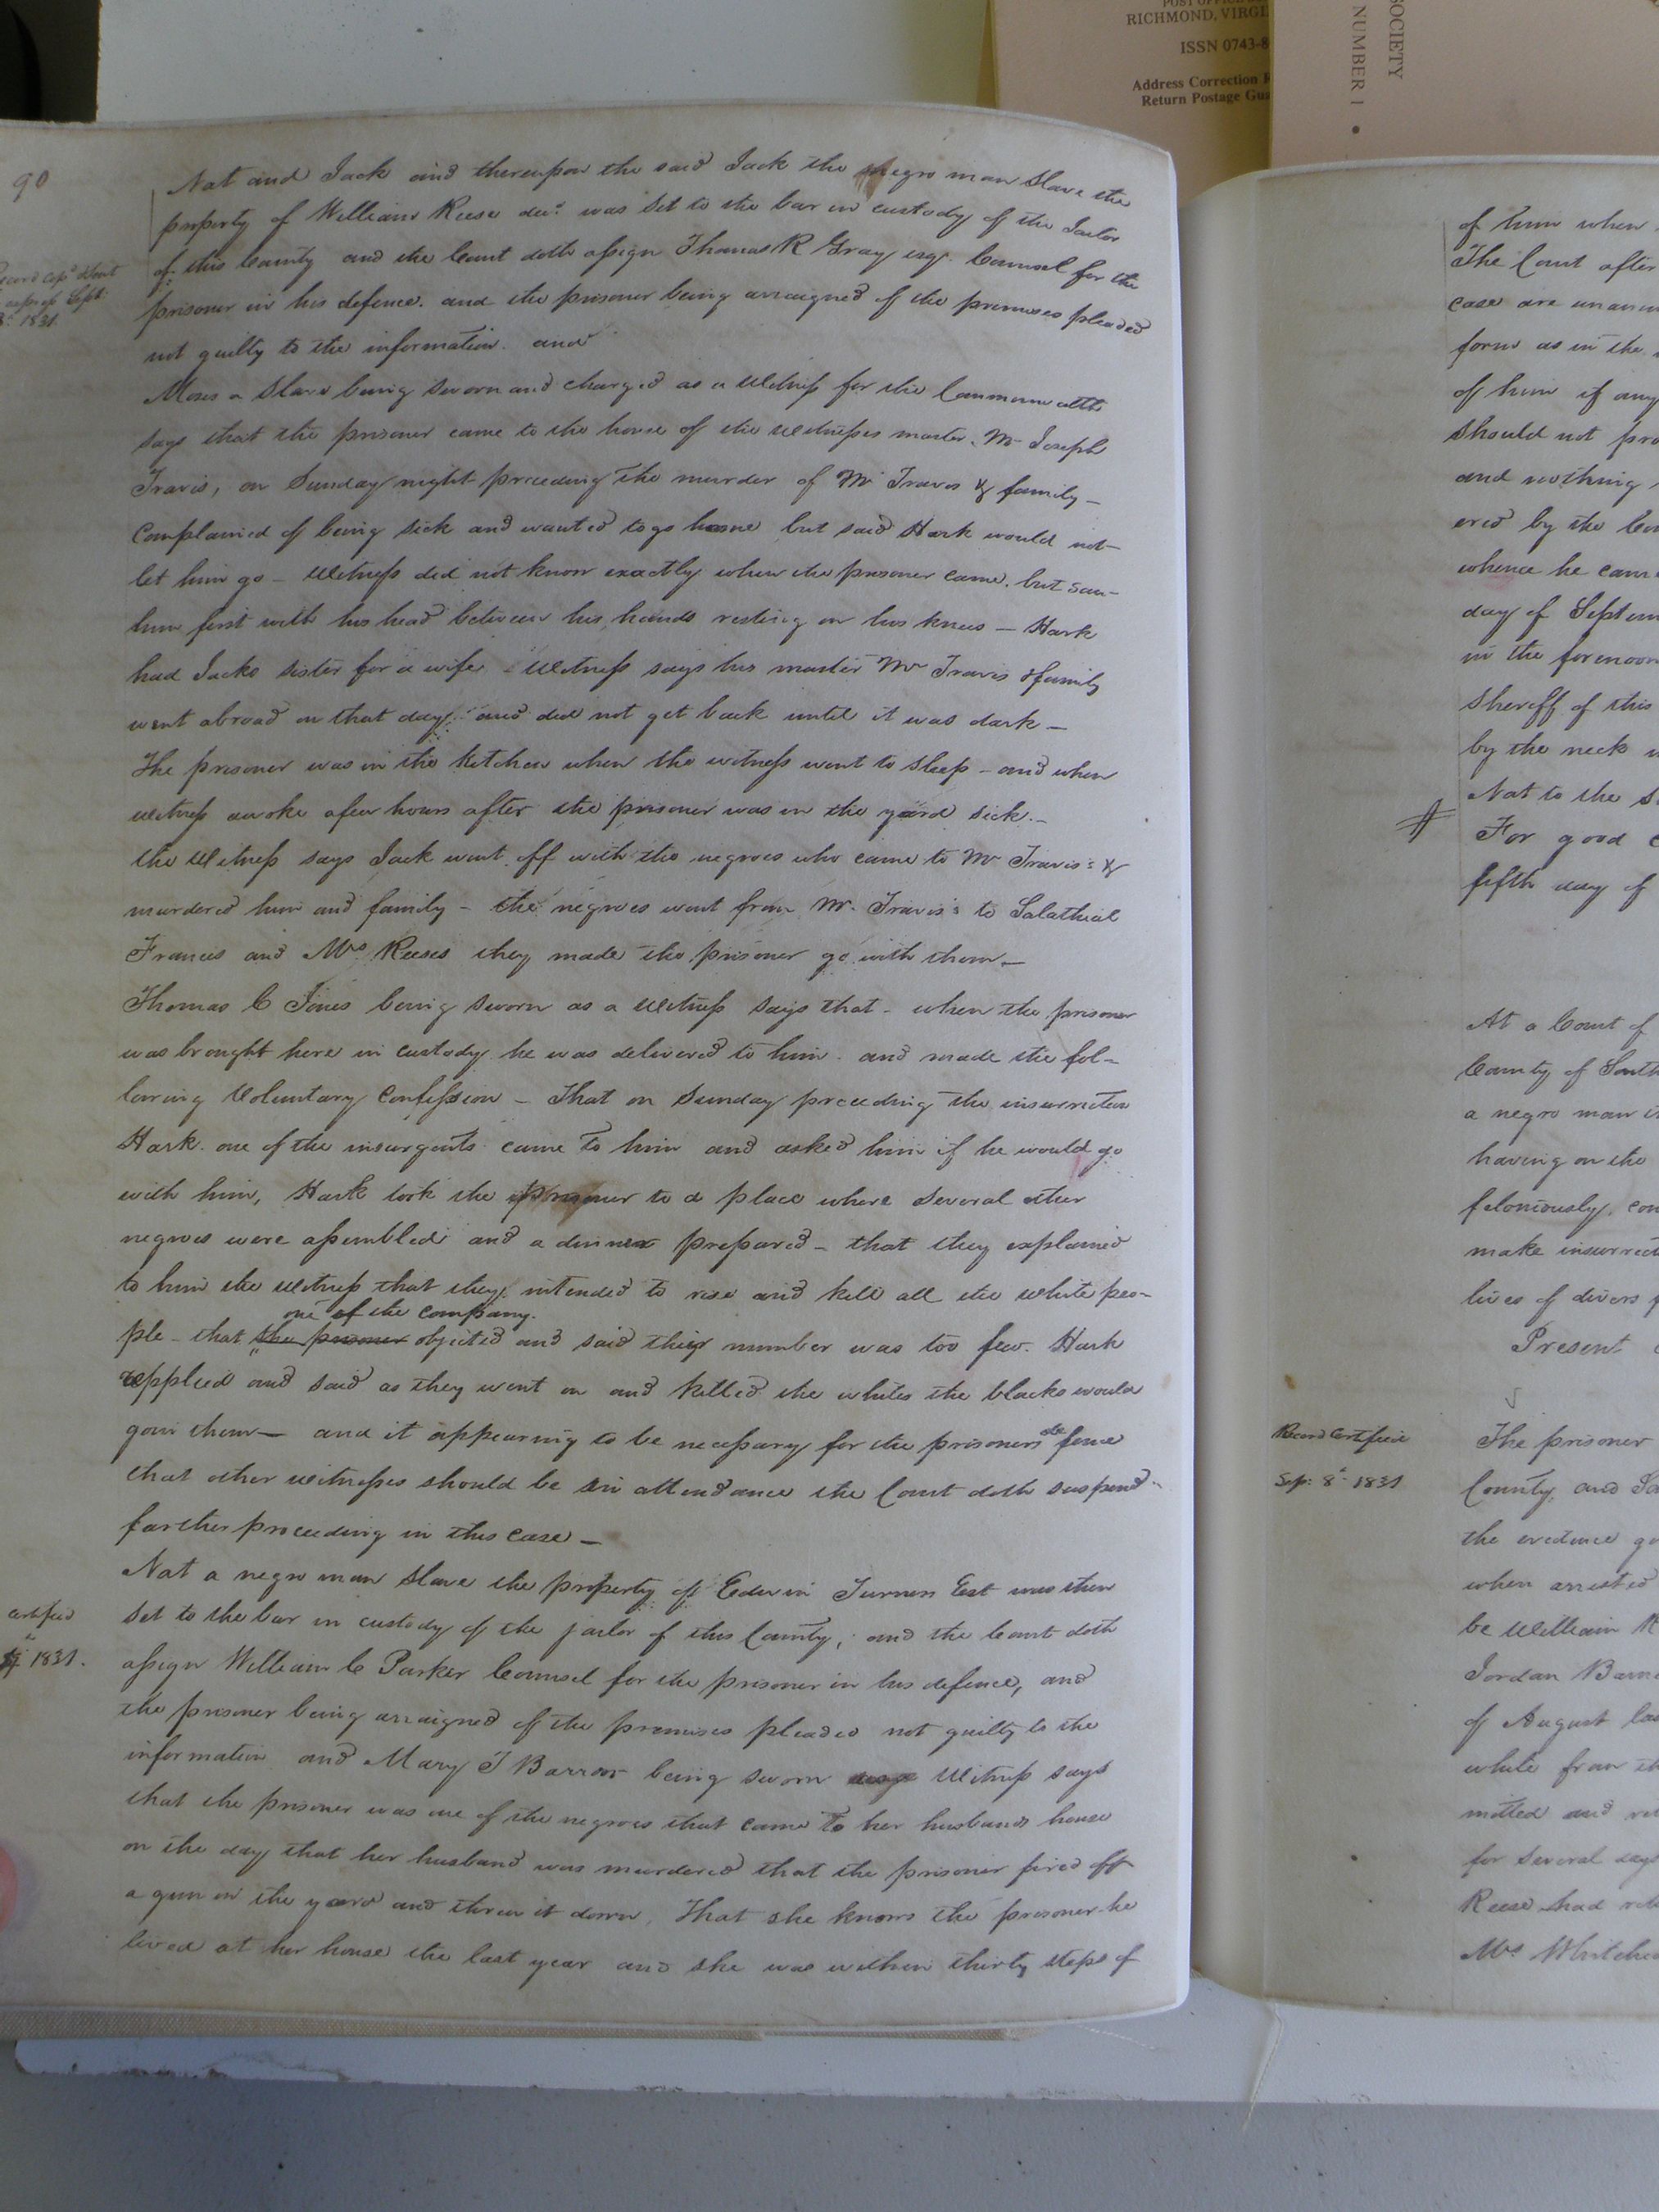 POST OFFICE
RICHMOND, VIRGI
ISSN 0743-8
Address Correction
Return Postage Gua
SOCIETY
NUMBER 1 •
90
Nat and Jack and thereupon the said Jack the negro man Slave the
property of William Reese decd. was Set to the bar in custody of the Jailor
of this County and the Court doth assign Thomas R Gray esqr. Counsel for the
prisoner in his defence. and the prisoner being arraigned of the premises pleaded
not guilty to the information. and
Sept
1831.
Moses a Slave being sworn and charged as a Witness for the Commonwealth
says that the prisoner came to the house of the Witnesses master. Mr Joseph
Travis, on Sunday night preceeding the murder of Mr Travis & family –
Complained of being sick and wanted to go home but said Hark would not –
let him go – Witness did not know exactly when the prisoner came. but saw –
him first with his head between his hands resting on his knees – Hark
had Jacks sister for a wife – Witness says his master Mr Travis & family
went abroad on that day. and did not get back until it was dark –
The prisoner was in the Kitchen when the witness went to sleep – and when
witness awoke a few hours after the prisoner was in the yard sick. –
the Witness says Jack went off with the negroes who came to Mr Travis's &
murdered him and family – the negroes went from Mr. Travis's to Salathial
Francis and Mrs Reeses they made the prisoner go with them –
Thomas C Jones being sworn as a Witness says that – when the prisoner
was brought here in custody he was delivered to him. and made the fol-
lowing Voluntary Confession – That on Sunday preceeding the insurrection
Hark. one of the insurgents came to him and asked him if he would go
with him, Hark took the prisoner to a place where several other
negroes were assembled and a dinner prepared – that they explained
to him the Witness that they intended to rise and kill all the white peo-
one of the company.
ple – that the prisoner objected and said their number was too few. Hark
replied and said as they went on and killed the whites the blacks would
goin them – and it appearing to be necessary for the prisoners defence
that other witnesses should be in attendance the Court doth suspend
farther proceeding in this case –
Nat a negro man slave the property of Edwin Turners Est was then
set to the bar in custody of the jailor of this County, and the Court doth
assign William C Parker Counsel for the prisoner in his defence, and
the prisoner being arraigned of the premises pleaded not guilty to the
information and Mary T Barrow being sworn Witness says
that the prisoner was one of the negroes that came to her husbands house
on the day that her husband was murdered that the prisoner fired off
a gun in the yard and threw it down, That she knows the prisoner – he
lived at her house the last year and she was within thirty steps of
1831.
of him when
The Court after
case are
form as in the
of him if any
should not
and nothing
ered by the
whence he came
day of Septem
in the forenoon
Sheriff of this
by the neck
Nat to the
For good
fifth day of
At a Court of
County of South
a negro man
having on the
feloniously. con
make insurrect
lives of divers
Present
Record Certified
Sep: 8th 1831
The prisoner
County, and
the evidence
when arrested
be William
Jordan Barn
of August las
while from th
mitted and
for several days
Reese had
Mrs Whitehea